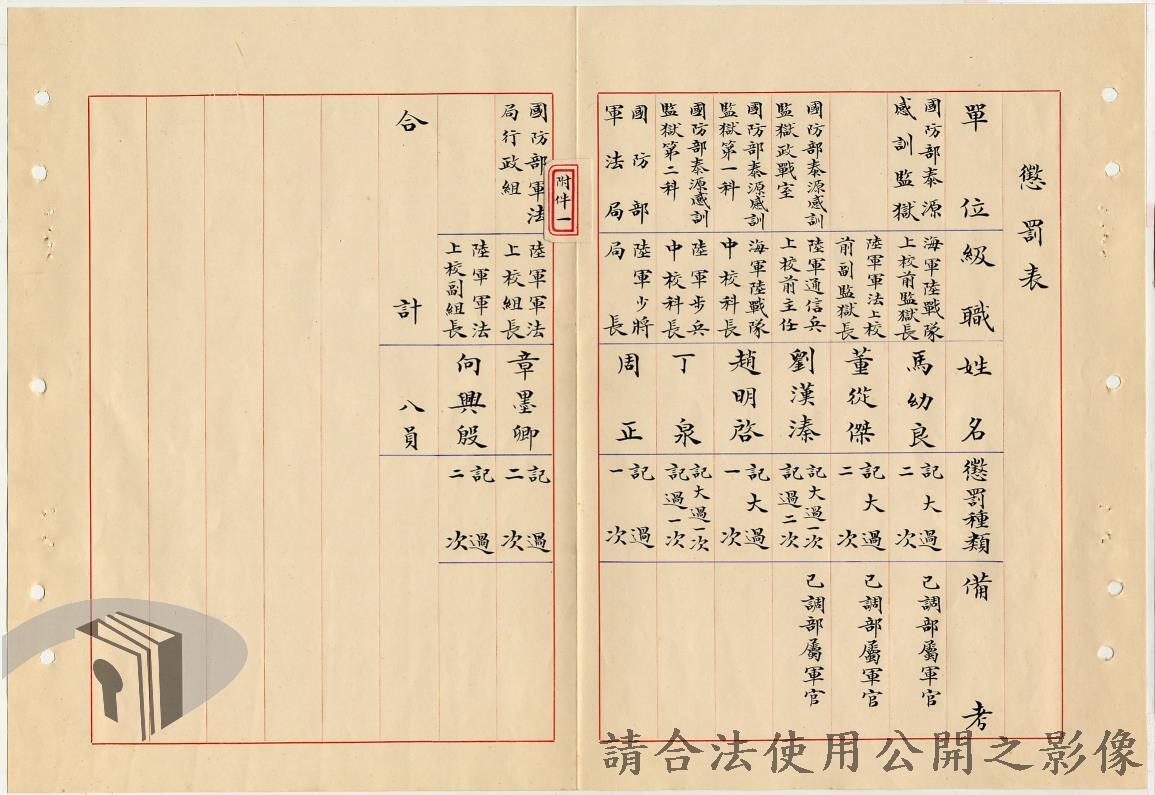 懲罰表
單位
級職
姓名
懲罰種類
備考
國防部泰源
感訓監獄
海軍陸戰隊
上校前監獄長
馬幼良
記大過
二次
已調部屬軍官
陸軍軍法上校
前副監獄長
董從傑
記大過
二次
已調部屬軍官
國防部泰源感訓
監獄政戰室
陸軍通信兵
上校前主任
劉漢溱
記大過一次
記過二次
已調部屬軍官
國防部泰源感訓
監獄第一科
海軍陸戰隊
中校科長
趙明啓
記大過
一次
國防部泰源感訓
監獄第二科
陸軍步兵
中校科長
丁泉
記大過一次
記過一次
國防部
軍法局
陸軍少將
局長
周正
記過
一次
附件一
國防部軍法
局行政組
陸軍軍法
上校組長
章墨卿
記過
二次
陸軍軍法
上校副組長
向興殷
記過
二次
合計
八員
請合法使用公開之影像